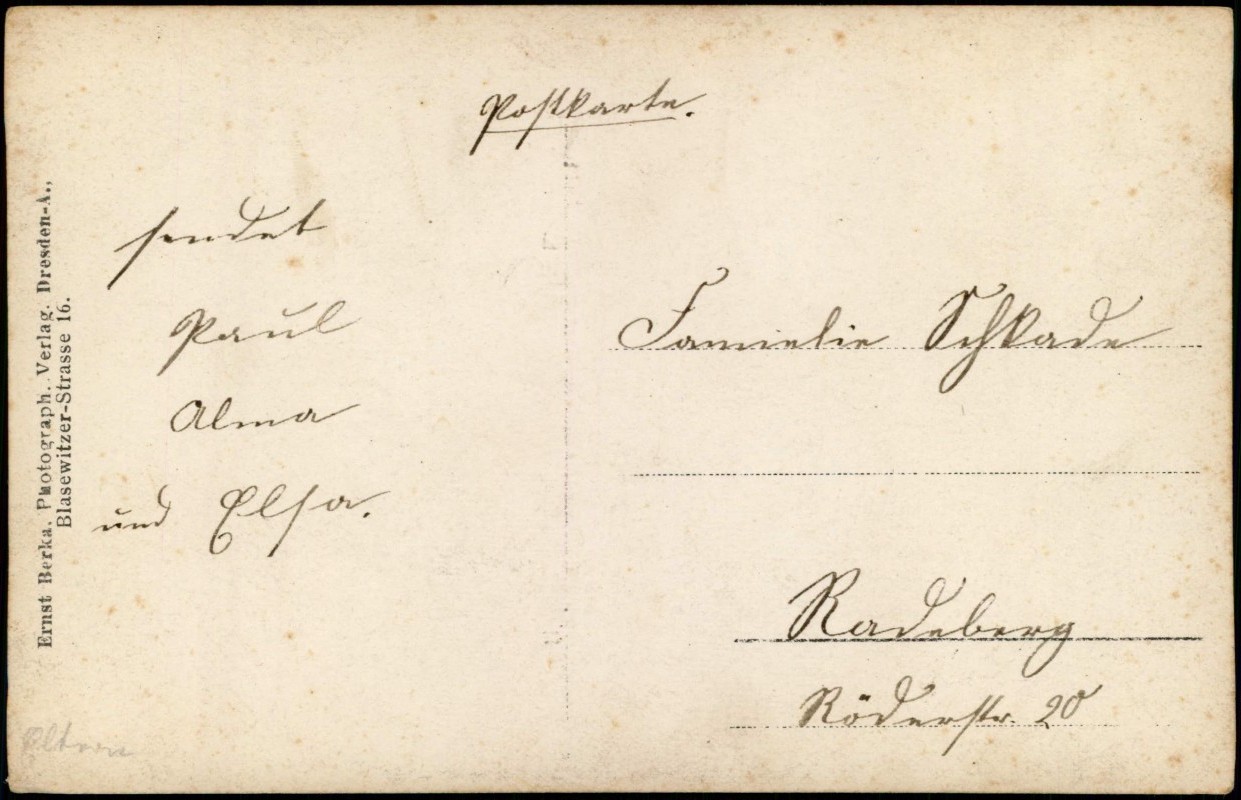 Postkarte.
sendet
Paul
Alma
und Elsa.
Famielie Schkade
Radeberg
Röderstr. 20
Ernst Berka, Photograph. Verlag. Dresden-A.,
Blasewitzer-Strasse 16.
Eltern